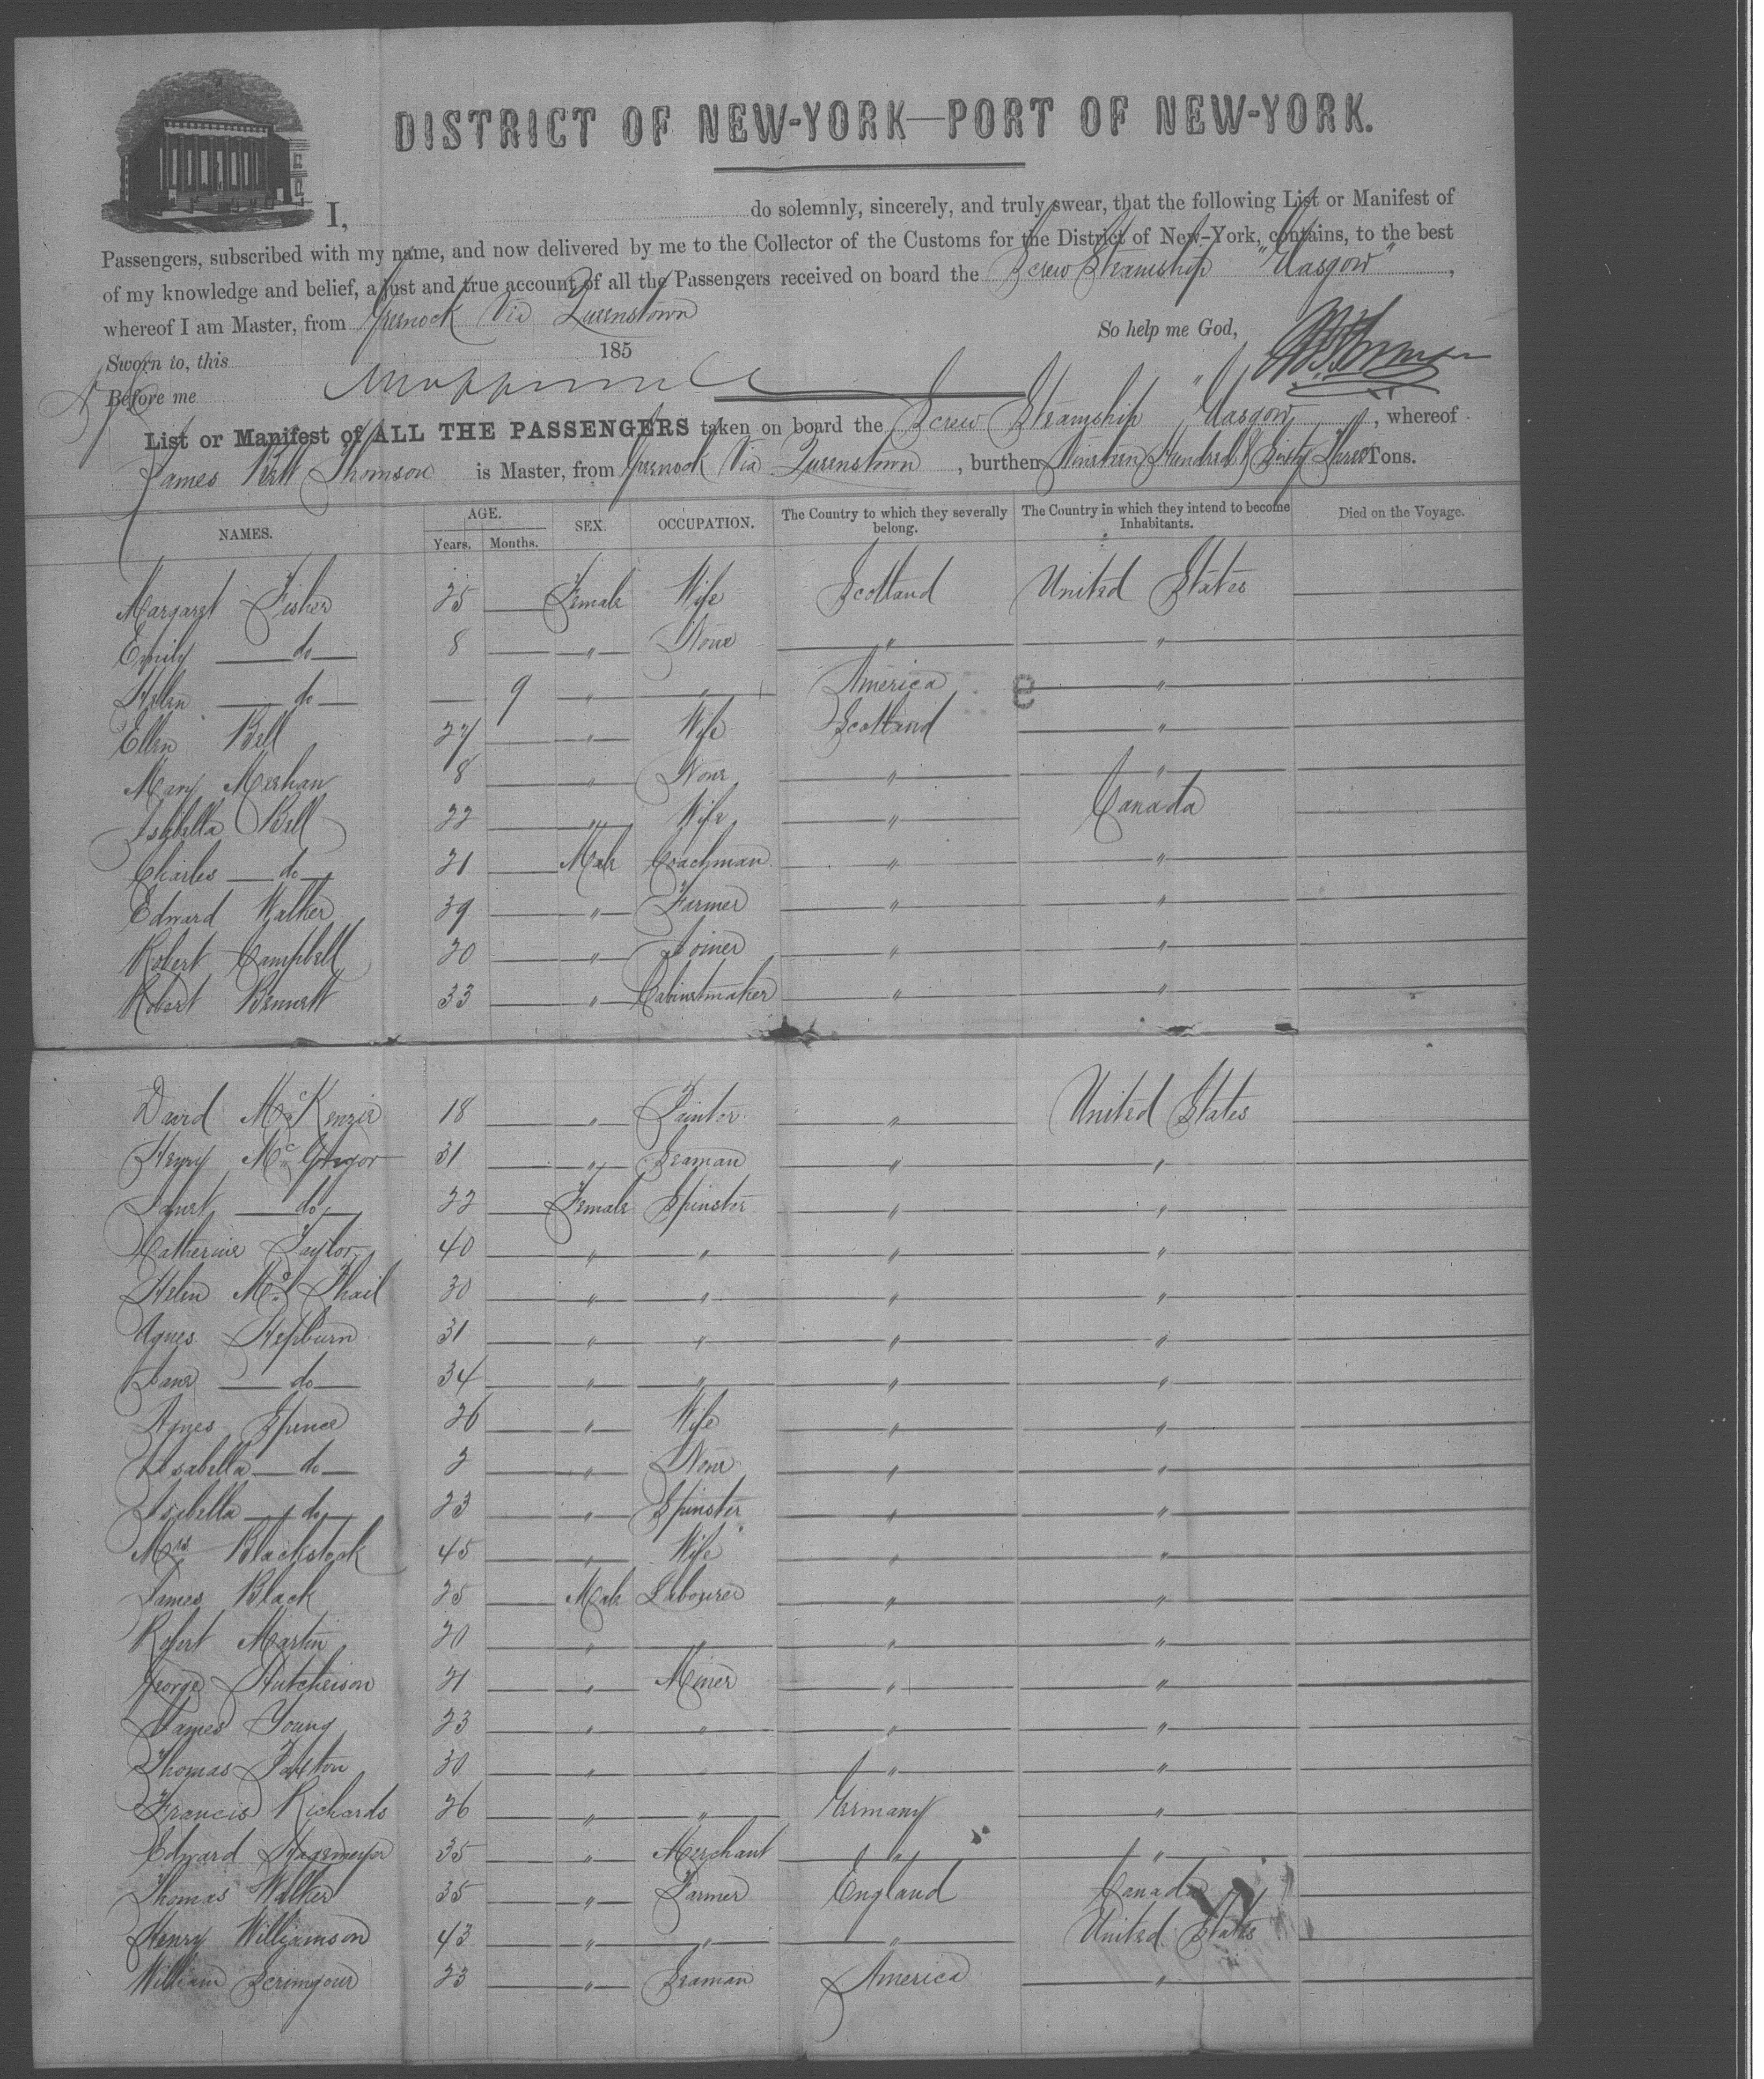 DISTRICT OF NEW-YORK—PORT OF NEW-YORK.
I, do solemnly, sincerely, and truly swear, that the following List or Manifest of
Passengers, subscribed with my name, and now delivered by me to the Collector of the Customs for the District of New-York, contains, to the best
of my knowledge and belief, a just and true account of all the Passengers received on board the Screw Steamship "Glasgow",
whereof I am Master, from Greenock Via Queenstown
So help me God,
Sworn to, this 185
Before me
List or Manifest of ALL THE PASSENGERS taken on board the Screw Steamship "Glasgow, whereof
James Thomson is Master, from Greenock Via Queenstown, burthen Nineteen Hundred & Sixty Three Tons.
NAMES. AGE. Years. Months. SEX. OCCUPATION. The Country to which they severally belong. The Country in which they intend to become Inhabitants. Died on the Voyage.
Margaret Fisher 25 Female Wife Scotland United States
Emily do 8 " None " "
Helen do 9 " " America "
e
Ellen Bell 27 " Wife Scotland "
Mary Meehan 8 " None " "
Isabella Bell 22 " Wife " Canada
Charles do 21 Male Coachman " "
Edward Walker 39 " Farmer " "
Robert Campbell 20 " Joiner " "
Robert Bennett 33 " Cabinetmaker " "
David McKenzie 18 " Painter " United States
Henry McGregor 31 " Seaman " "
Janet do 22 Female Spinster " "
Catherine Taylor 40 " " " "
Helen McPhail 30 " " " "
Agnes Hepburn 31 " " " "
Jane do 34 " " " "
Agnes Spence 26 " Wife " "
Isabella do 2 " None " "
Isabella do 23 " Spinster " "
Mrs Blackstock 45 " Wife " "
James Black 25 Male Labourer " "
Robert Martin 20 " " " "
George Hutcheison 21 " Miner " "
James Young 23 " " " "
Thomas Paxton 30 " " " "
Francis Richards 26 " " Germany "
Edward Hagemeyer 35 " Merchant " "
Thomas Walker 35 " Farmer England Canada
Henry Williamson 43 " " " United States
William Scrimgour 23 " Seaman America "